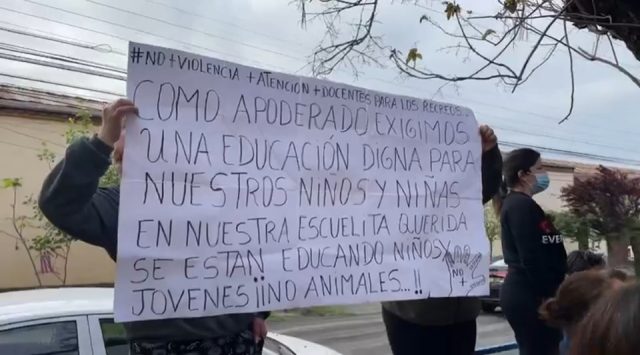 #NO+VIOLENCIA +ATENCION +DOCENTES PARA LOS RECREOS...
COMO APODERADO EXIGIMOS
UNA EDUCACIÓN DIGNA PARA
NUESTROS NIÑOS Y NIÑAS
EN NUESTRA ESCUELITA QUERIDA
SE ESTAN EDUCANDO NIÑOS Y
JOVENES ¡¡NO ANIMALES...!!
NO
+
EVER